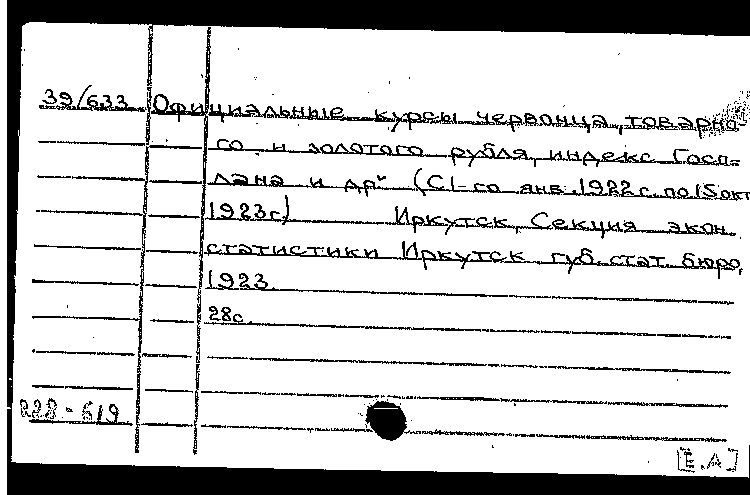 39/633 Официальные курсы червонца, товарно-
го и золотого рубля, индекс Госп-
лана и др" (С 1-го янв. 1922 г. по 15 окт
1923 г) Иркутск, Секция экон.
статистики Иркутск губ. стат. бюро,
1923.
28с.
228-619
[E.A]